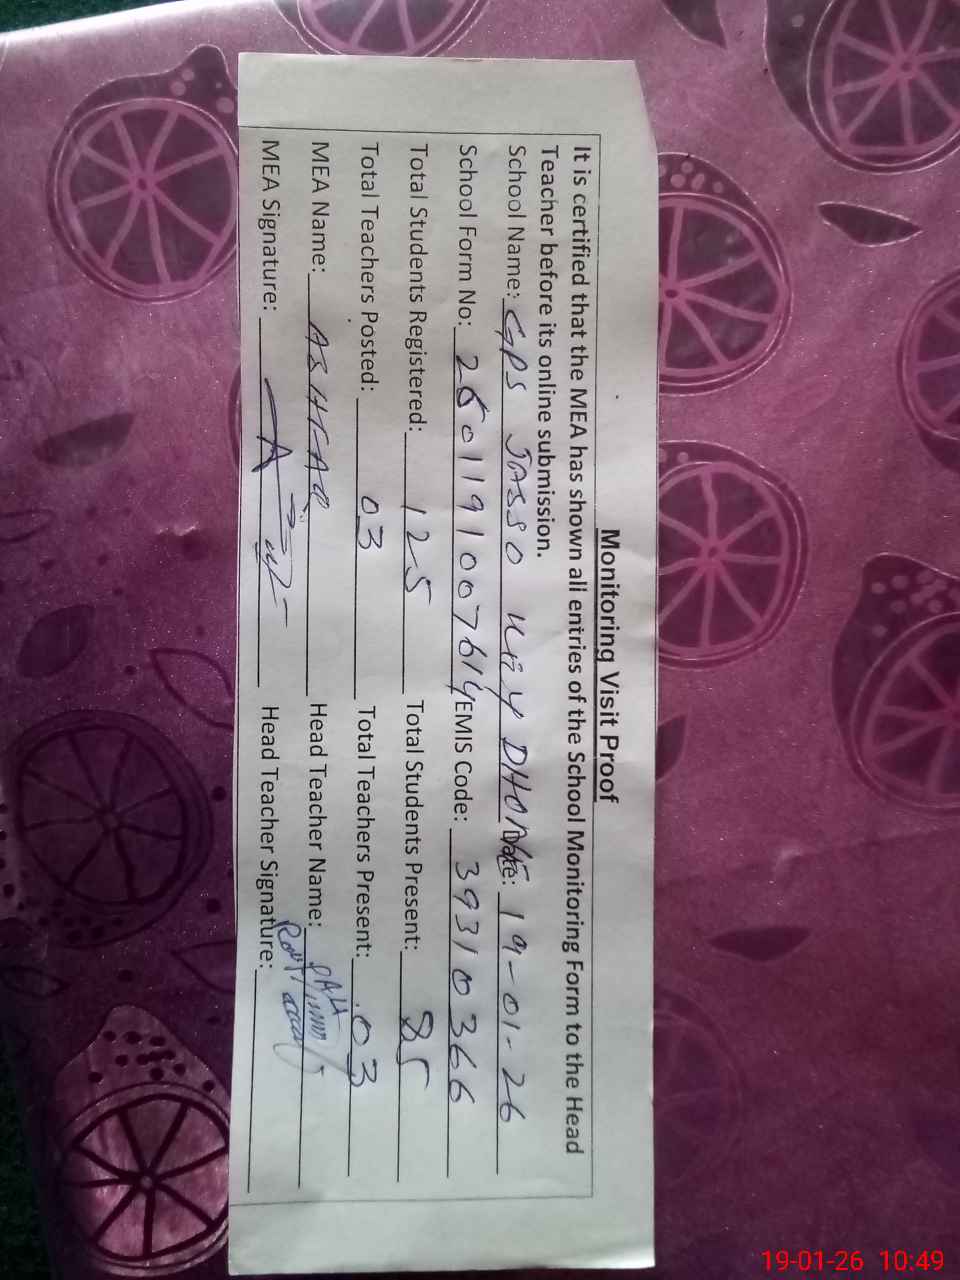 Monitoring Visit Proof
It is certified that the MEA has shown all entries of the School Monitoring Form to the Head
Teacher before its online submission.
School Name: GPS JASSO Date: 19-01-26
School Form No: 2601191007614 EMIS Code: 39310366
Total Students Registered: 125 Total Students Present: 85
Total Teachers Posted: 03 Total Teachers Present: 03
MEA Name: ASHFAQ Head Teacher Name:
MEA Signature: Head Teacher Signature:
19-01-26 10:49